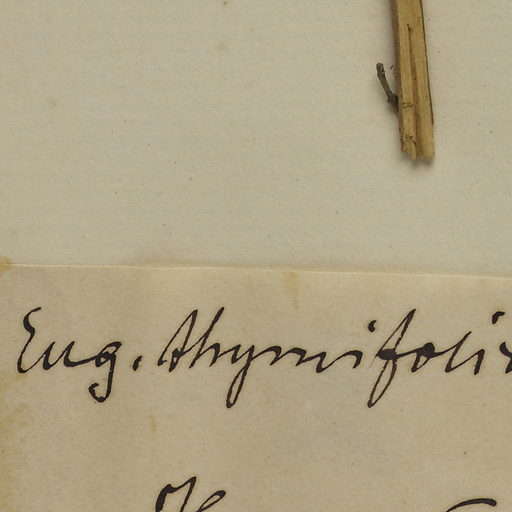 Eug. thymifoli